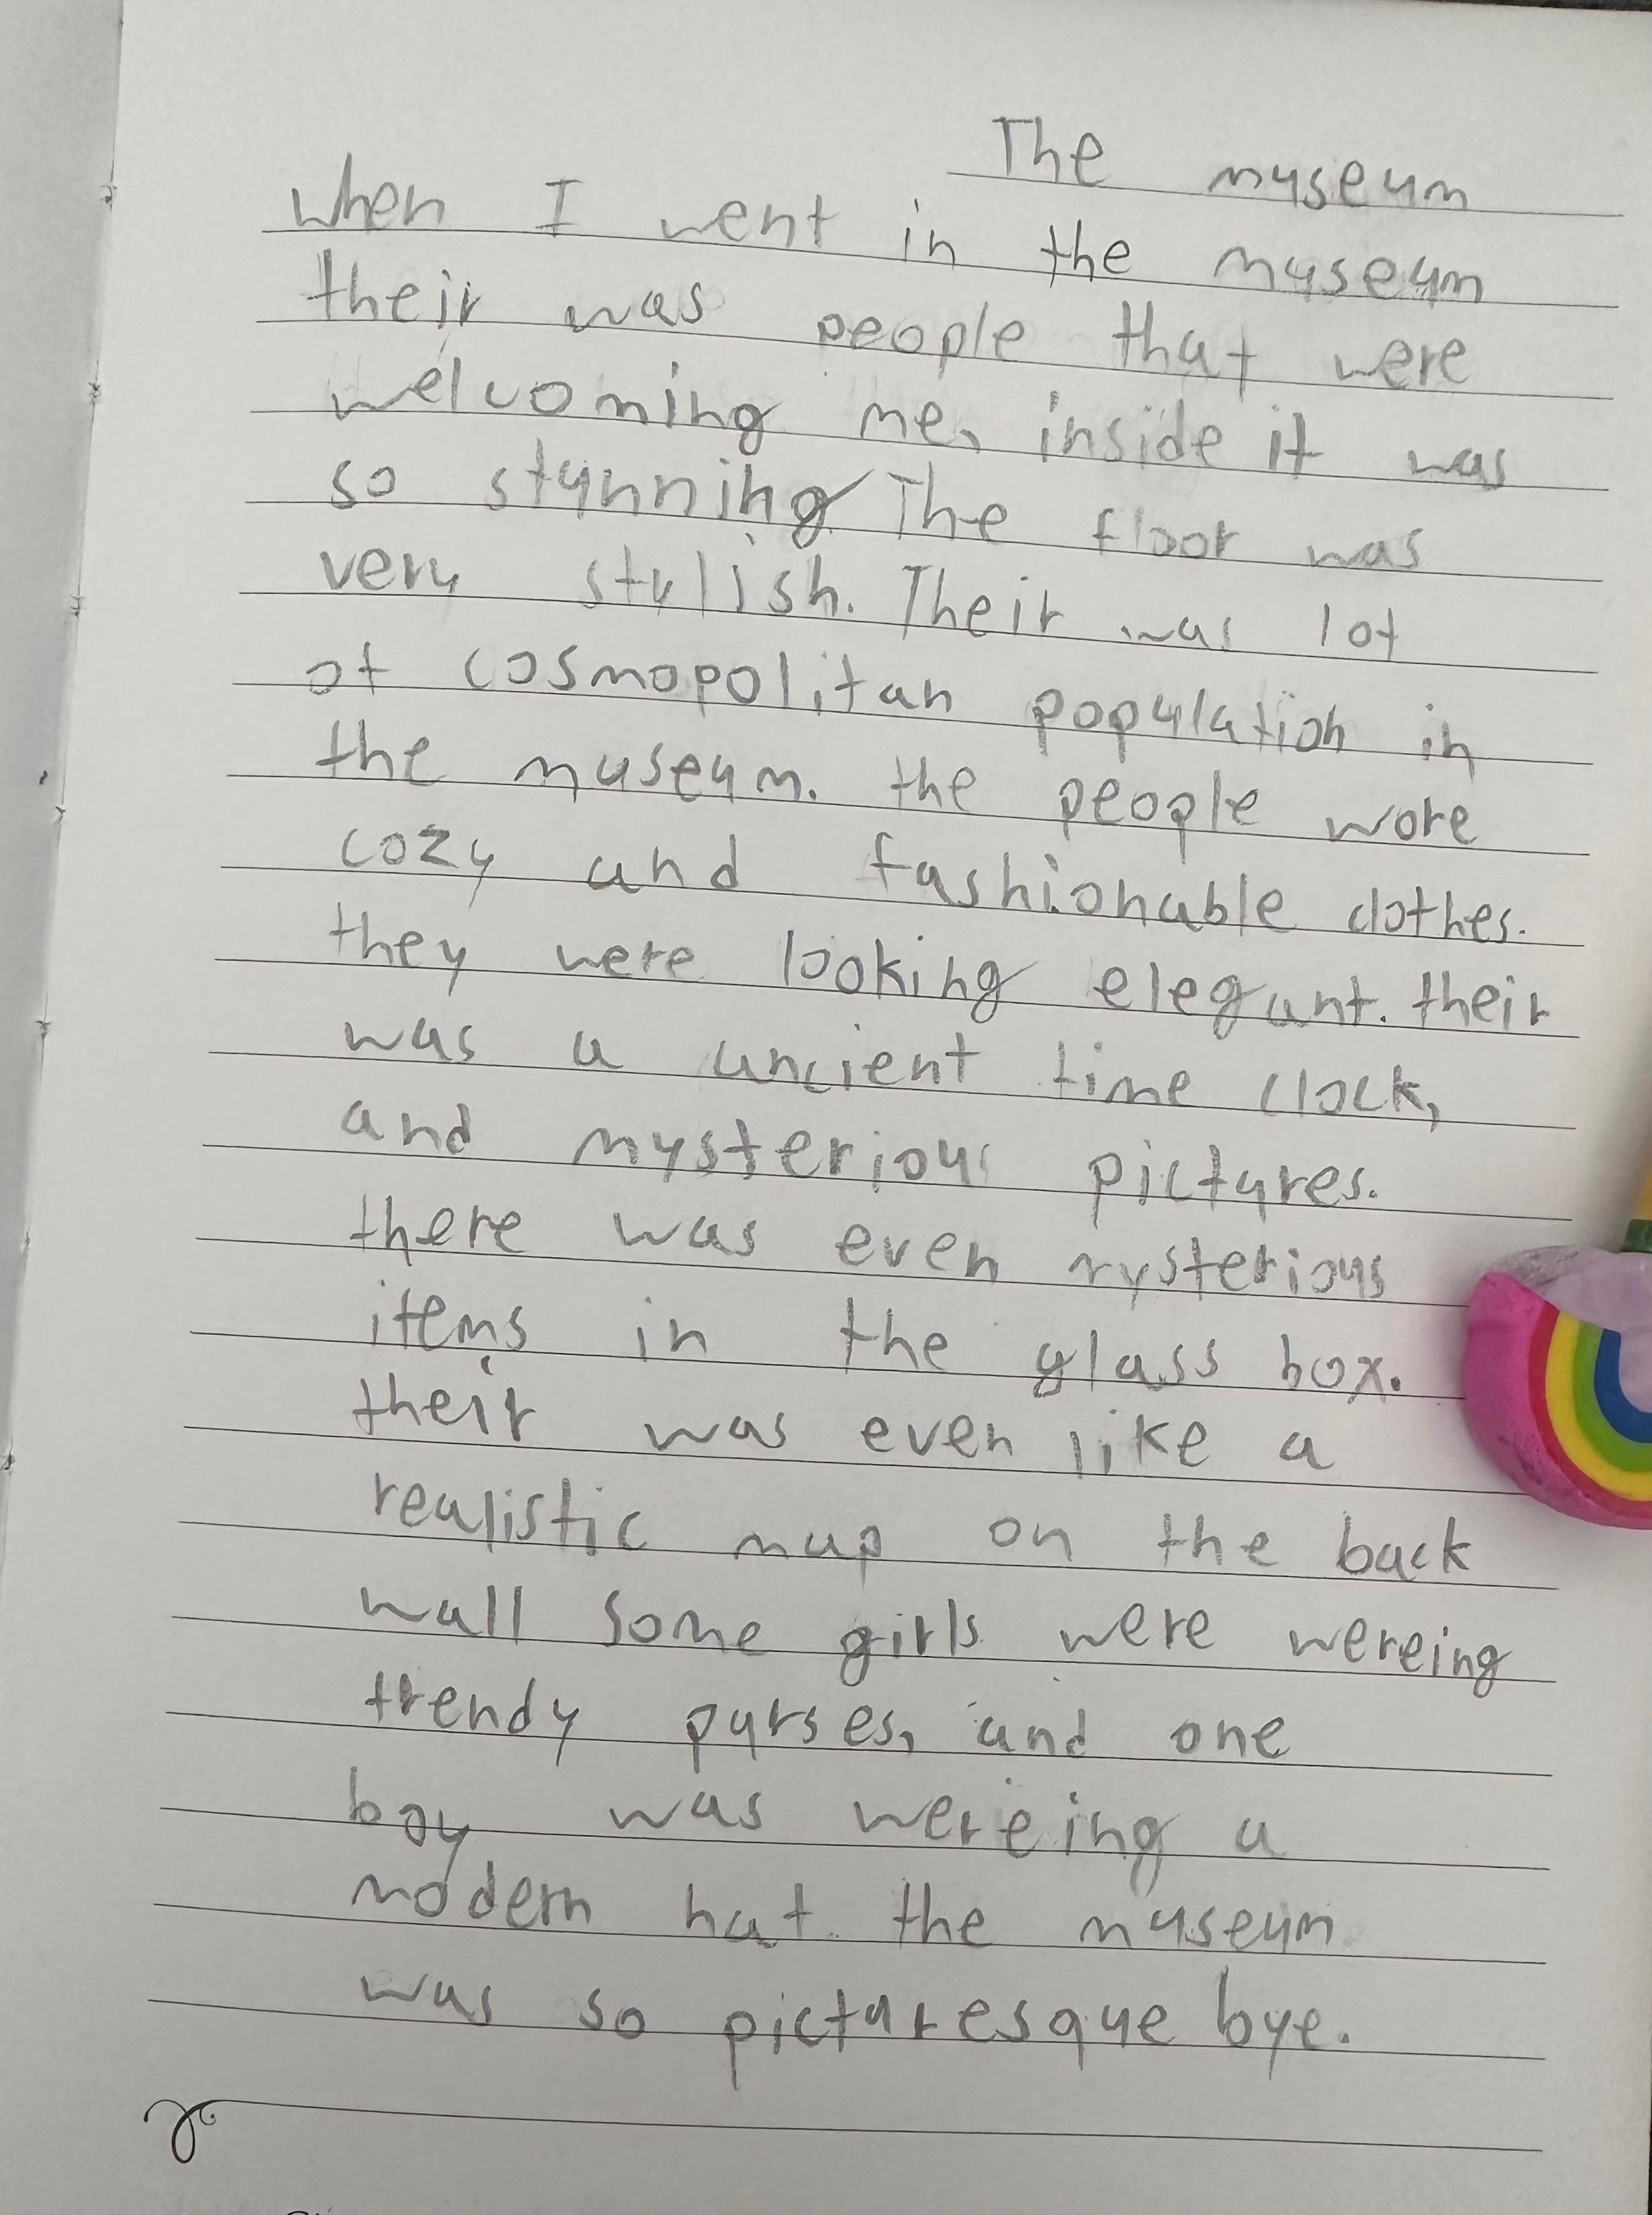 The museum
when I went in the museum
their was people that were
welcoming me, inside it was
so stunning The floor was
very stylish. Their was lot
of cosmopolitan population in
the museum. the people wore
cozy and fashionable clothes.
they were looking elegant. their
was a ancient time clock,
and mysterious pictures.
there was even mysterious
items in the glass box.
their was even like a
realistic map on the back
wall some girls were wereing
trendy purses, and one
boy was wereing a
modern hat. the museum
was so picturesque bye.